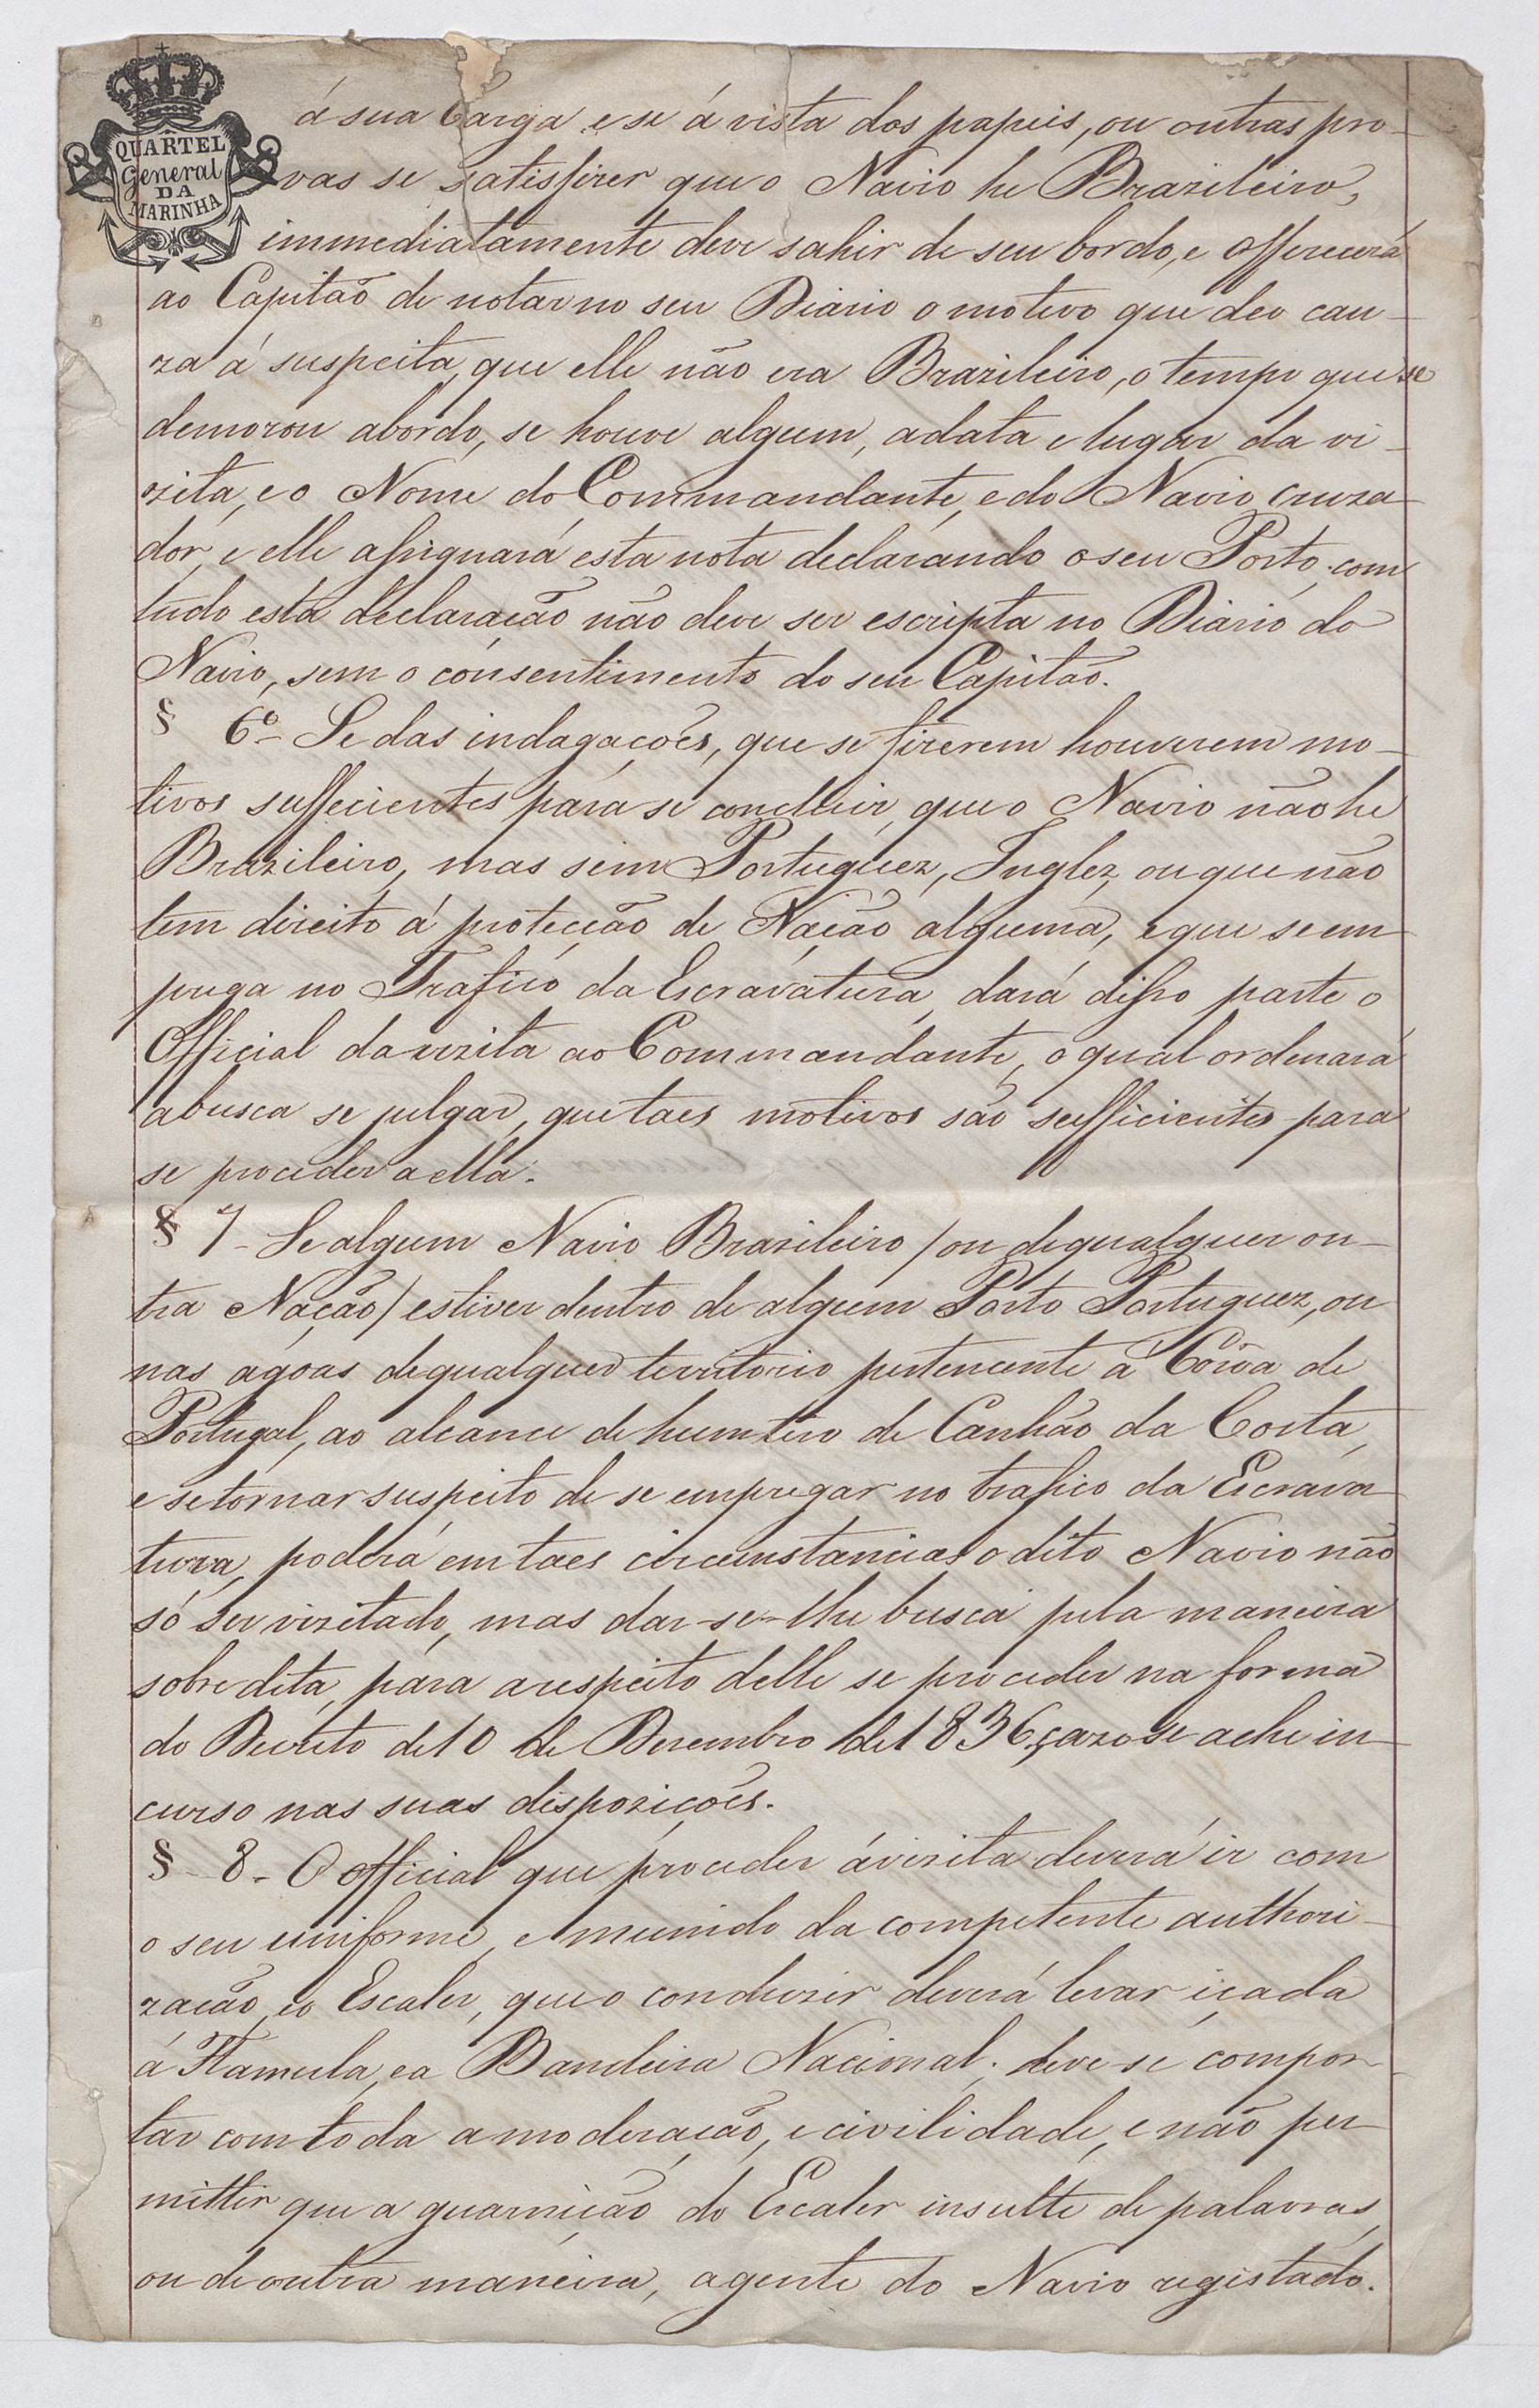 QUARTEL
General
DA
MARINHA
á sua Carga e se á vista dos papeis, ou outras pro-
vas se satisfizer que o Navio he Brazileiro,
immediatamente deve sahir de seu bordo, e offerecerá
ao Capitão de notar no seu Diario o motivo que deo cau-
za á suspeita, que elle não era Brazileiro, o tempo que se
demorou abordo, se houve algum, a data e lugar da vi-
zita, e o Nome do Commandante, e do Navio cruza-
dor, e elle assignará esta nota declarando o seu Porto, com
tudo esta declaração não deve ser escripta no Diario do
Navio, sem o consentimento do seu Capitão.
§ 6º - Se das indagações, que se fizerem houverem mo-
tivos sufficientes para se concluir, que o Navio não he
Brazileiro, mas sim Portuguez, Inglez, ou que não
tem direito á protecção de Nação alguma, e que se em
prega no Trafico da Escravatura, dará disso parte o
Official da vizita ao Commandante, o qual ordenará
a busca se julgar, que taes motivos são sufficientes para
se proceder a ella.
§ 7 - Se algum Navio Brazileiro / ou de qualquer ou-
tra Nação / estiver dentro de algum Porto Portuguez, ou
nas agoas de qualquer territorio pertencente á Corôa de
Portugal, ao alcance de hum tiro de Canhão da Costa,
e se tornar suspeito de se empregar no trafico da Escrava
tura, poderá em taes circumstancias o dito Navio não
só ser vizitado, mas dar-se-lhe busca pela maneira
sobredita, para a respeito delle se proceder na forma
do Decreto de 10 de Dezembro de 1836, cazo se ache in-
curso nas suas dispozições.
§ - 8 - O Official que proceder á vizita deverá ir com
o seu uniforme, e munido da competente authori-
zação, e o Escaler, que o conduzir deverá levar içada
a Flamula, e a Bandeira Nacional; deve-se compor-
tar com toda a moderação, e civilidade, e não per-
mittir que a guarnição do Escaler insulte de palavras,
ou de outra maneira, a gente do Navio registado.